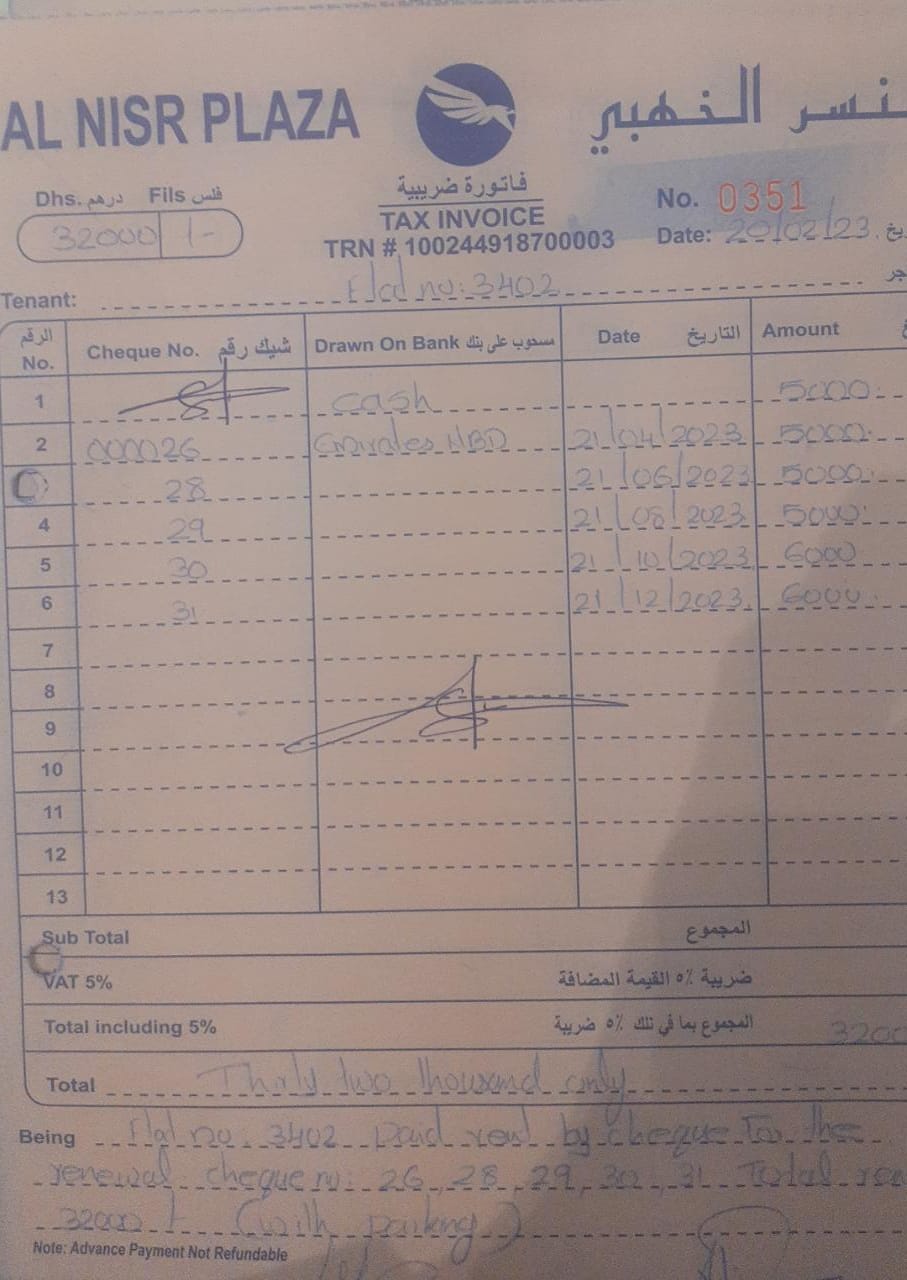 AL NISR PLAZA نسر الذهبي
Dhs. درهم Fils فلس
32000 1-
فاتورة ضريبية
TAX INVOICE
TRN # 100244918700003
No. 0351
Date: 20/02/23.
Tenant: Flat no: 3402
الرقم No. Cheque No. شيك رقم Drawn On Bank مسحوب على بنك Date التاريخ Amount
1 Cash 5000.
2 000026 Emirates NBD 21/04/2023 5000.
28 21/06/2023 5000.
4 29 21/08/2023 5000.
5 30 21/10/2023 6000
6 31 21/12/2023. 6000.
7
8
9
10
11
12
13
Sub Total المجموع
VAT 5% ضريبة ٥٪ القيمة المضافة
Total including 5% المجموع بما في تلك ٥٪ ضريبة 3200
Total Thirty two thousand only
Being Flat no. 3402 paid rent by cheque For thee
renewal cheque no: 26, 28, 29, 30, 31 Total
32000 (with parking)
Note: Advance Payment Not Refundable